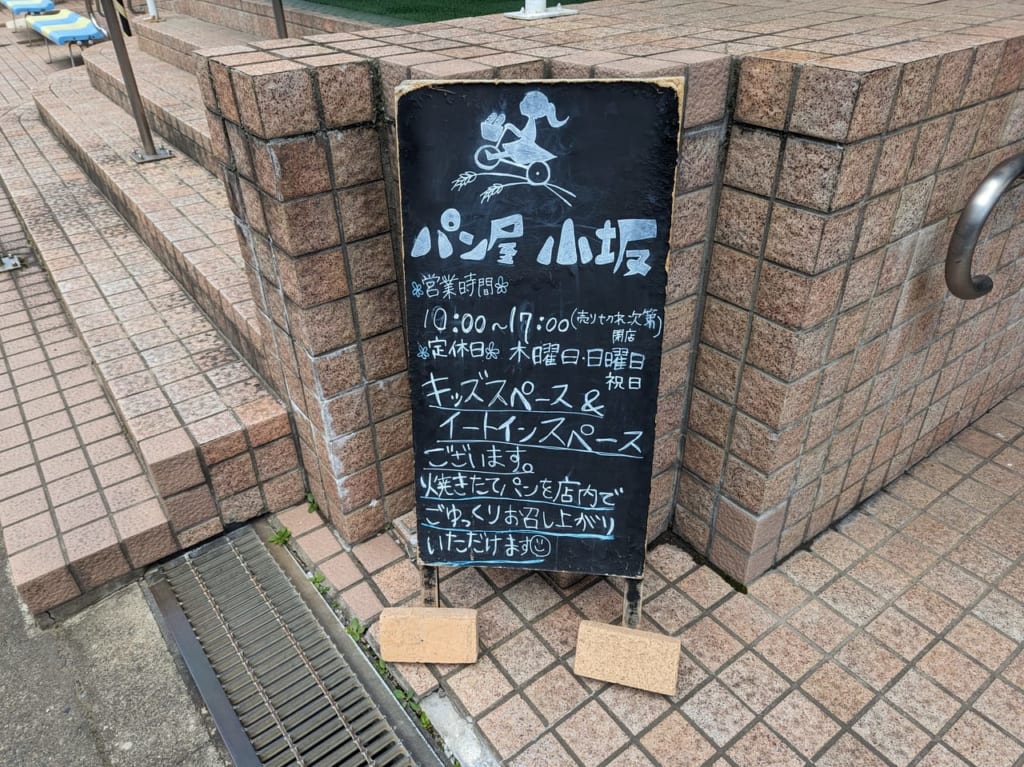 パン屋 小坂
❀営業時間❀
10:00~17:00(売りセク次第
閉店)
❀定休日❀ 木曜日・日曜日
祝日
キッズスペース &
イートインスペース
ございます。
焼きたてパンを店内で
ごゆっくりお召し上がり
いただけます☺